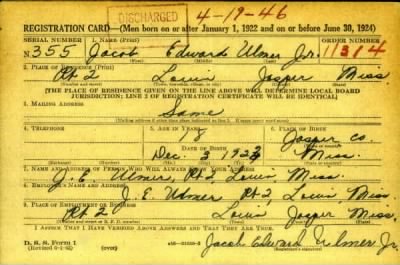 DISCHARGED 4-19-46
REGISTRATION CARD—(Men born on or after January 1, 1922 and on or before June 30, 1924)
SERIAL NUMBER 1. NAME (Print) ORDER NUMBER
N 355 Jacob Edward Ulmer Jr. 11314
(First) (Middle) (Last)
2. PLACE OF RESIDENCE (Print)
Rt 2 Louin Jasper Miss.
(Number and street) (Town, township, village, or city) (County) (State)
[THE PLACE OF RESIDENCE GIVEN ON THE LINE ABOVE WILL DETERMINE LOCAL BOARD
JURISDICTION; LINE 2 OF REGISTRATION CERTIFICATE WILL BE IDENTICAL]
3. MAILING ADDRESS
Same
(Mailing address if other than place indicated on line 2. If same insert word same)
4. TELEPHONE 5. AGE IN YEARS 6. PLACE OF BIRTH
18 Jasper Co.
DATE OF BIRTH (Town or county)
Dec. 3 1923 Miss.
(Exchange) (Number) (Mo.) (Day) (Yr.) (State or country)
7. NAME AND ADDRESS OF PERSON WHO WILL ALWAYS KNOW YOUR ADDRESS
J. E. Ulmer, Rt 2, Louin, Miss.
8. EMPLOYER'S NAME AND ADDRESS
J. E. Ulmer Rt 2, Louin, Miss.
9. PLACE OF EMPLOYMENT OR BUSINESS
Rt 2 Louin Jasper Miss.
(Number and street or R. F. D. number) (Town) (County) (State)
I AFFIRM THAT I HAVE VERIFIED ABOVE ANSWERS AND THAT THEY ARE TRUE.
D. S. S. Form 1
(Revised 6-1-42) (over) Jacob Edward Ulmer Jr.
(Registrant's signature)